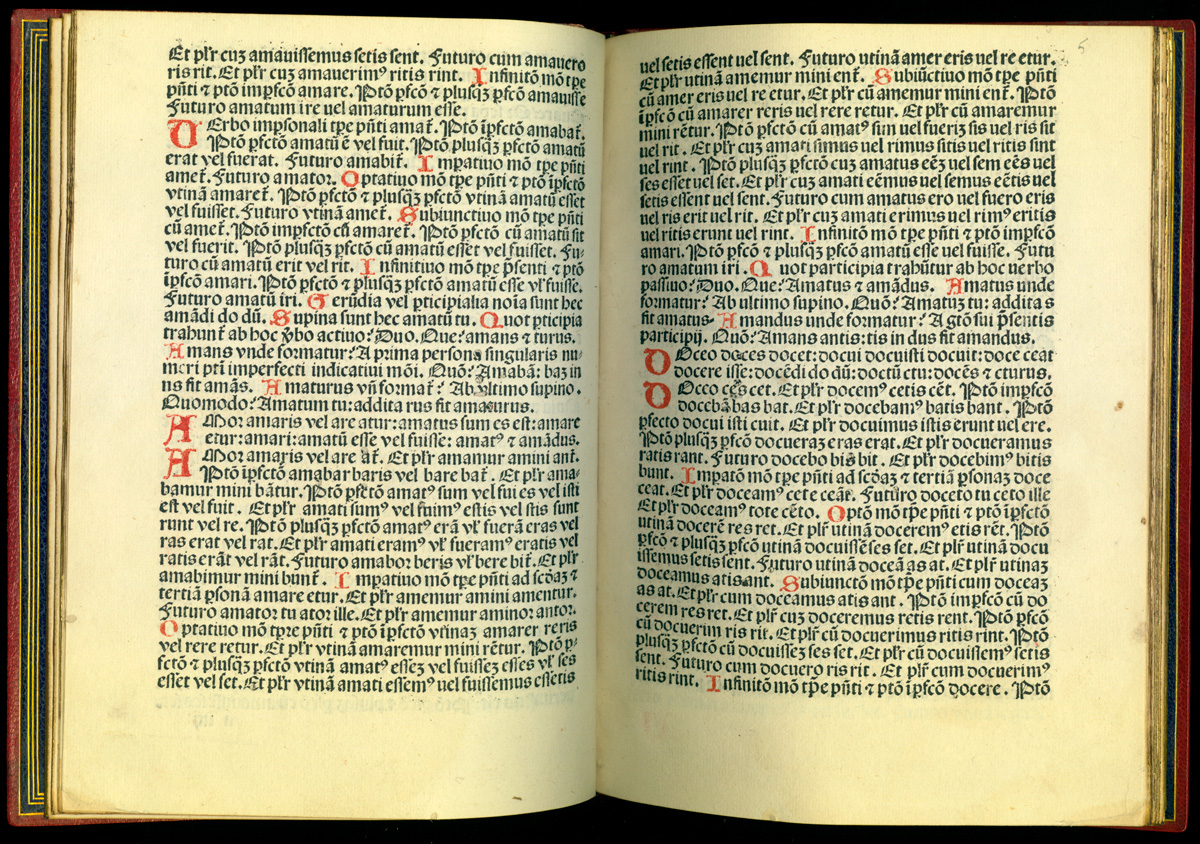 Et pl̄r cuȝ amauissemus setis sent. Futuro cum amauero
ris rit. Et pl̄r cuȝ amauerimꝰ ritis rint. Infinitō mō tp̄e
pn̄ti ⁊ ptō imꝑfcō amare. Ptō ꝑfcō ⁊ plusqȝ ꝑfcō amauisse
Futuro amatum ire uel amaturum esse.
VErbo imꝑsonali tp̄e pn̄ti amat̄. Ptō īꝑfctō amabat̄.
Ptō ꝑfctō amatū ē vel fuit. Ptō plusqȝ ꝑfctō amatū
erat vel fuerat. Futuro amabit̄. Imꝑatiuo mō tp̄e pn̄ti
amet̄. Futuro amator. Optatiuo mō tp̄e pn̄ti ⁊ ptō īꝑfctō
vtinā amaret̄. Ptō ꝑfctō ⁊ plusqȝ ꝑfctō vtinā amatū esset
vel fuisset. Futuro vtinā amet̄. Subiunctiuo mō tp̄e pn̄ti
cū amet̄. Ptō impfctō cū amaret̄. Ptō ꝑfctō cū amatū sit
vel fuerit. Ptō plusqȝ ꝑfctō cū amatū esset vel fuisset. Fu-
turo cū amatū erit vel rit. Infinitiuo mō tp̄e p̄senti ⁊ ptō
īꝑfcō amari. Ptō ꝑfctō ⁊ plusqȝ ꝑfctō amatū esse vl̄ fuisse.
Futuro amatū iri. Gerūdia vel ꝑticipialia noīa sunt hec
amādi do dū. Supina sunt hec amatū tu. Quot ꝑticipia
trahunt̄ ab hoc v̄bo actiuo? Duo. Que? amans ⁊ turus.
Amans vnde formatur? A prima persona singularis nu-
meri ptī imperfecti indicatiui mōi. Quō? Amabā: baȝ in
ns fit amās. Amaturus vn̄ format̄? Ab vltimo supino.
Quomodo? Amatum tu: addita rus fit amaturus.
AMor: amaris vel are atur: amatus sum es est: amare
etur: amari: amatū esse vel fuisse: amatꝰ ⁊ amādus.
AMor amaris vel are at̄. Et pl̄r amamur amini ant̄.
Ptō īꝑfctō amabar baris vel bare bat̄. Et pl̄r ama-
bamur mini bātur. Ptō ꝑfctō amatꝰ sum vel fui es vel isti
est vel fuit. Et pl̄r amati sumꝰ vel fuimꝰ estis vel stis sunt
runt vel re. Ptō plusqȝ ꝑfctō amatꝰ erā vl̄ fuerā eras vel
ras erat vel rat. Et pl̄r amati eramꝰ vl̄ fueramꝰ eratis vel
ratis erāt vel rāt. Futuro amabor: beris vl̄ bere bit̄. Et pl̄r
amabimur mini bunt̄. Imꝑatiuo mō tp̄e pn̄ti ad scdāȝ ⁊
tertiā ꝑsonā amare etur. Et pl̄r amemur amini amentur.
Futuro amator tu ator ille. Et pl̄r amemur aminor antor.
Optatiuo mō tp̄e pn̄ti ⁊ ptō īꝑfctō vtinaȝ amarer reris
vel rere retur. Et pl̄r vtinā amaremur mini rētur. Ptō ꝑ-
fctō ⁊ plusqȝ ꝑfctō vtinā amatꝰ esseȝ vel fuisseȝ esses vl̄ ses
esset vel set. Et pl̄r vtinā amati essemꝰ uel fuissemus essetis
5
uel setis essent uel sent. Futuro utinā amer eris uel re etur.
Et pl̄r utinā amemur mini ent̄. Subiūctiuo mō tp̄e pn̄ti
cū amer eris uel re etur. Et pl̄r cū amemur mini ent̄. Ptō
īꝑfcō cū amarer reris uel rere retur. Et pl̄r cū amaremur
mini rētur. Ptō ꝑfctō cū amatꝰ sim uel fueriȝ sis uel ris sit
uel rit. Et pl̄r cuȝ amati simus uel rimus sitis uel ritis sint
uel rint. Ptō plusqȝ ꝑfctō cuȝ amatus eēȝ uel sem eēs uel
ses esset uel set. Et pl̄r cuȝ amati eēmus uel semus eētis uel
setis essent uel sent. Futuro cum amatus ero uel fuero eris
uel ris erit uel rit. Et pl̄r cuȝ amati erimus uel rimꝰ eritis
uel ritis erunt uel rint. Infinitō mō tp̄e pn̄ti ⁊ ptō imꝑfcō
amari. Ptō ꝑfcō ⁊ plusqȝ ꝑfcō amatū esse uel fuisse. Futu
ro amatum iri. Quot participia trahūtur ab hoc uerbo
passiuo? Duo. Que? Amatus ⁊ amādus. Amatus unde
formatur? Ab ultimo supino. Quō? Amatuȝ tu: addita s
fit amatus. Amandus unde formatur? A gtō sui p̄sentis
participij. Quō? Amans antis: tis in dus fit amandus.
DOceo doces docet: docui docuisti docuit: doce ceat
docere isse: docēdi do dū: doctū ctu: docēs ⁊ cturus.
DOceo ces cet. Et pl̄r docemꝰ cetis cēt. Ptō imꝑfcō
docebā bas bat. Et pl̄r docebamꝰ batis bant. Ptō
ꝑfecto docui isti cuit. Et pl̄r docuimus istis erunt uel ere.
Ptō plusqȝ ꝑfctō docueraȝ eras erat. Et pl̄r docueramus
ratis rant. Futuro docebo bis bit. Et pl̄r docebimꝰ bitis
bunt. Impatō mō tp̄e pn̄ti ad scdāȝ ⁊ tertiā ꝑsonaȝ doce
ceat. Et pl̄r doceamꝰ cete ceāt. Futuro doceto tu ceto ille
Et pl̄r doceamꝰ tote cēto. Optō mō tp̄e pn̄ti ⁊ ptō īꝑfctō
utinā docerē res ret. Et pl̄r utinā doceremꝰ etis rēt. Ptō
ꝑfctō ⁊ plusqȝ ꝑfcō utinā docuissē ses set. Et pl̄r utinā docu
issemus setis sent. Futuro utinā doceā as at. Et pl̄r utinaȝ
doceamus atis ant. Subiunctō mō tp̄e pn̄ti cum doceaȝ
as at. Et pl̄r cum doceamus atis ant. Ptō imꝑfcō cū do
cerem res ret. Et pl̄r cuȝ doceremus retis rent. Ptō ꝑfcō
cū docuerim ris rit. Et pl̄r cū docuerimus ritis rint. Ptō
plusqȝ ꝑfctō cū docuisseȝ ses set. Et pl̄r cū docuissemꝰ setis
sent. Futuro cum docuero ris rit. Et pl̄r cum docuerimꝰ
ritis rint. Infinitō mō tp̄e pn̄ti ⁊ ptō īꝑfcō docere. Ptō